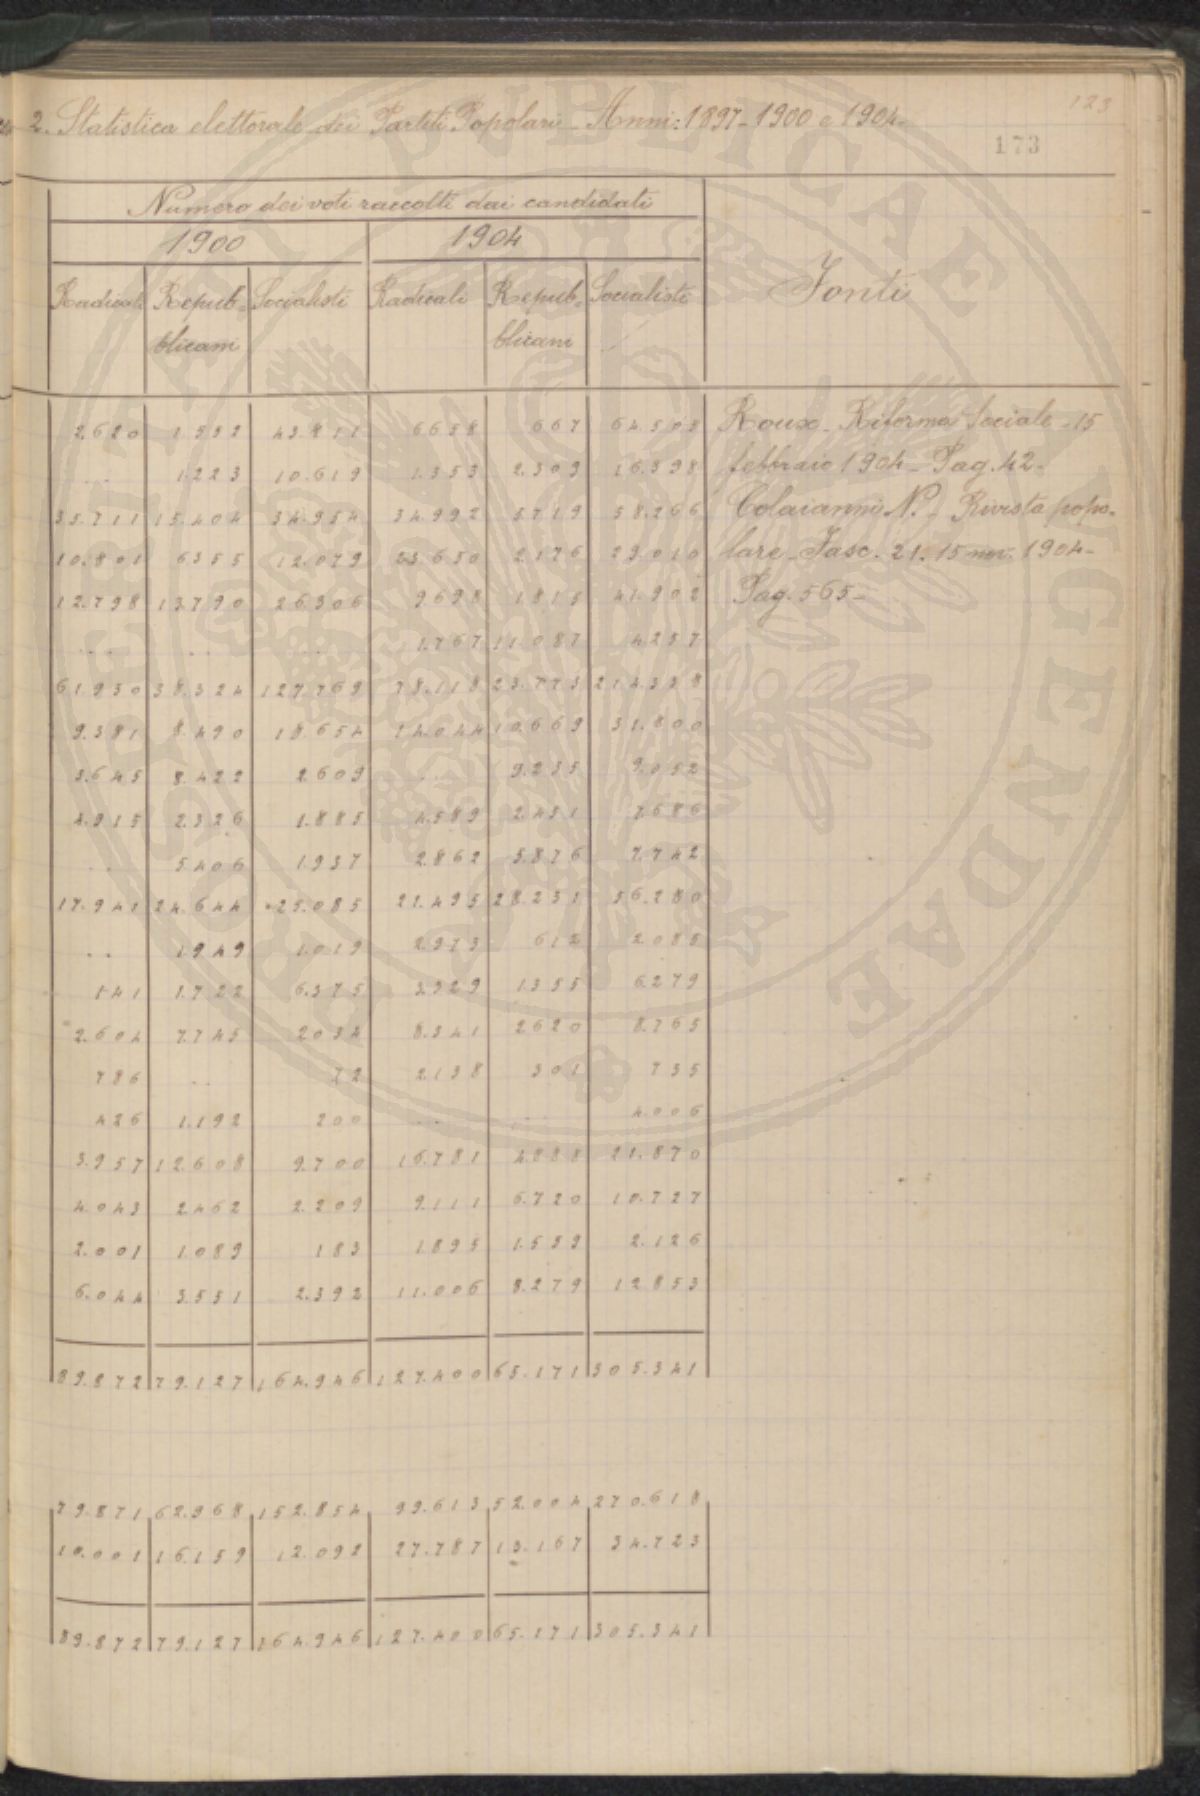 123
2. Statistica elettorale dei Partiti Popolari - Anni: 1897 - 1900 e 1904 -
173
Numero dei voti raccolti dai candidati
1900 1904
Radicali Repub= Socialisti Radicali Repub= Socialisti Fonti
blicani blicani
2.620 1.552 43.811 6658 667 64.505 Roux - Riforma Sociale - 15
... 1.223 10.619 1.353 2.309 16.398 febbraio 1904 - Pag. 42 -
35.711 15.404 34.954 34.992 5719 58.266 Colaianni N. - Rivista popo-
10.801 6355 12.079 23.650 2.176 29.010 lare - Fasc. 21. 15 nov. 1904 -
12.798 13.790 26306 9698 1815 41.902 Pag. 565 -
... ... ... 1.767 11.087 4257
61.930 38.324 127.769 78.118 23.773 214.338
9.381 8.490 18.654 14.044 10.669 31.800
3.645 8.422 2.609 ... 9.235 9.052
4.915 2.326 1.885 4.589 2.451 7.686
... 5.406 1.937 2.862 5.876 7.742
17.941 24.644 25.085 21.495 28.231 56.280
... 1.949 1.019 2.373 612 2.085
141 1.722 6.375 3.929 1.355 6.279
2.604 7.745 2.034 8.341 2.620 8.765
786 ... 72 2.138 301 735
426 1.192 200 ... ... 4.006
3.957 12.608 9.700 16.781 4.888 21.870
4.043 2.462 2.209 9.111 6.720 10.727
2.001 1.089 183 1.895 1.559 2.126
6.044 3.551 2.392 11.006 8.279 12.853
89.872 79.127 164.946 127.400 65.171 305.341
79.871 62.968 152.854 99.613 52.004 270.618
10.001 16.159 12.092 27.787 13.167 34.723
89.872 79.127 164.946 127.400 65.171 305.341